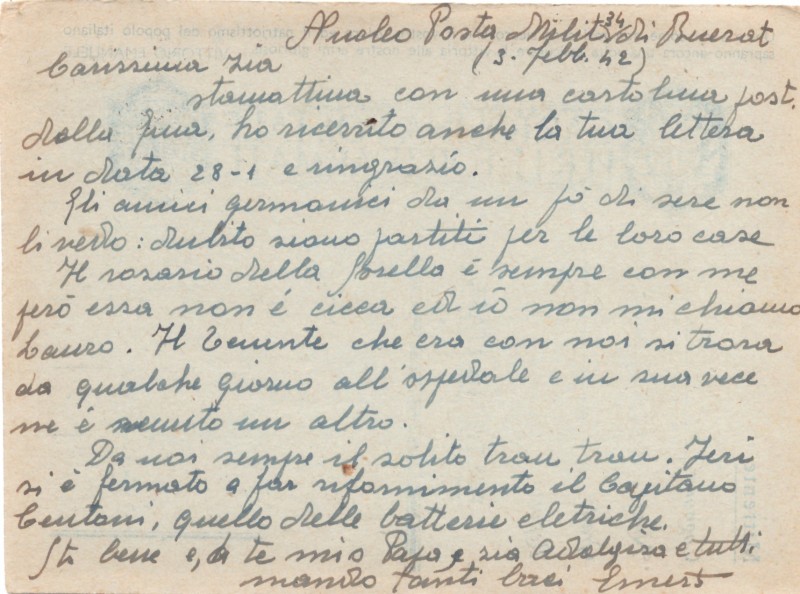 Nucleo Posta Milit. 34 di Buerat
Carissima zia (3. febb. 42)
stamattina con una cartolina post.
della Gina, ho ricevuto anche la tua lettera
in data 28-1 e ringrazio.
Gli amici germanici da un pò di sere non
li vedo: dubito siano partiti per le loro case
Il rosario della Sorella é sempre con me
però essa non é cicca ed io non mi chiamo
Lauro. Il Tenente che era con noi si trova
da qualche giorno all'ospedale e in sua vece
ne é venuto un altro.
Da noi sempre il solito tran tran. Ieri
si é fermato a far rifornimento il Capitano
Centoni, quello delle batterie eletriche.
Sti bene e, a te mio Papà e zia Adalgisa e tutti
mando tanti baci Ernesto